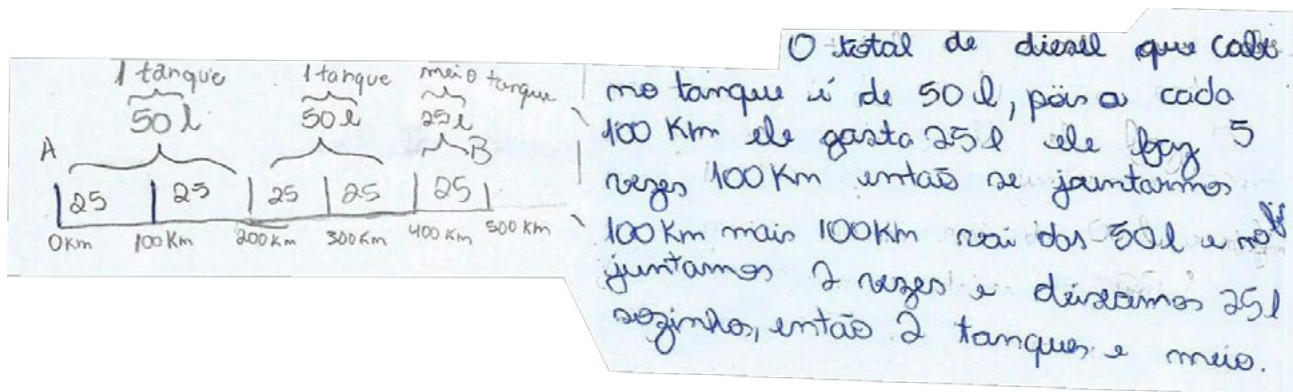 1 tanque 1 tanque meio tanque
50 l 50 l 25 l
A B
25 25 25 25 25
0Km 100Km 200Km 300Km 400Km 500Km
O total de diesel que cabe
no tanque é de 50 l, pois a cada
100 Km ele gasta 25 l ele faz 5
vezes 100Km então se juntarmos
100Km mais 100Km vai dar 50 l e nós
juntamos 2 vezes e deixamos 25 l
sozinho, então 2 tanques e meio.